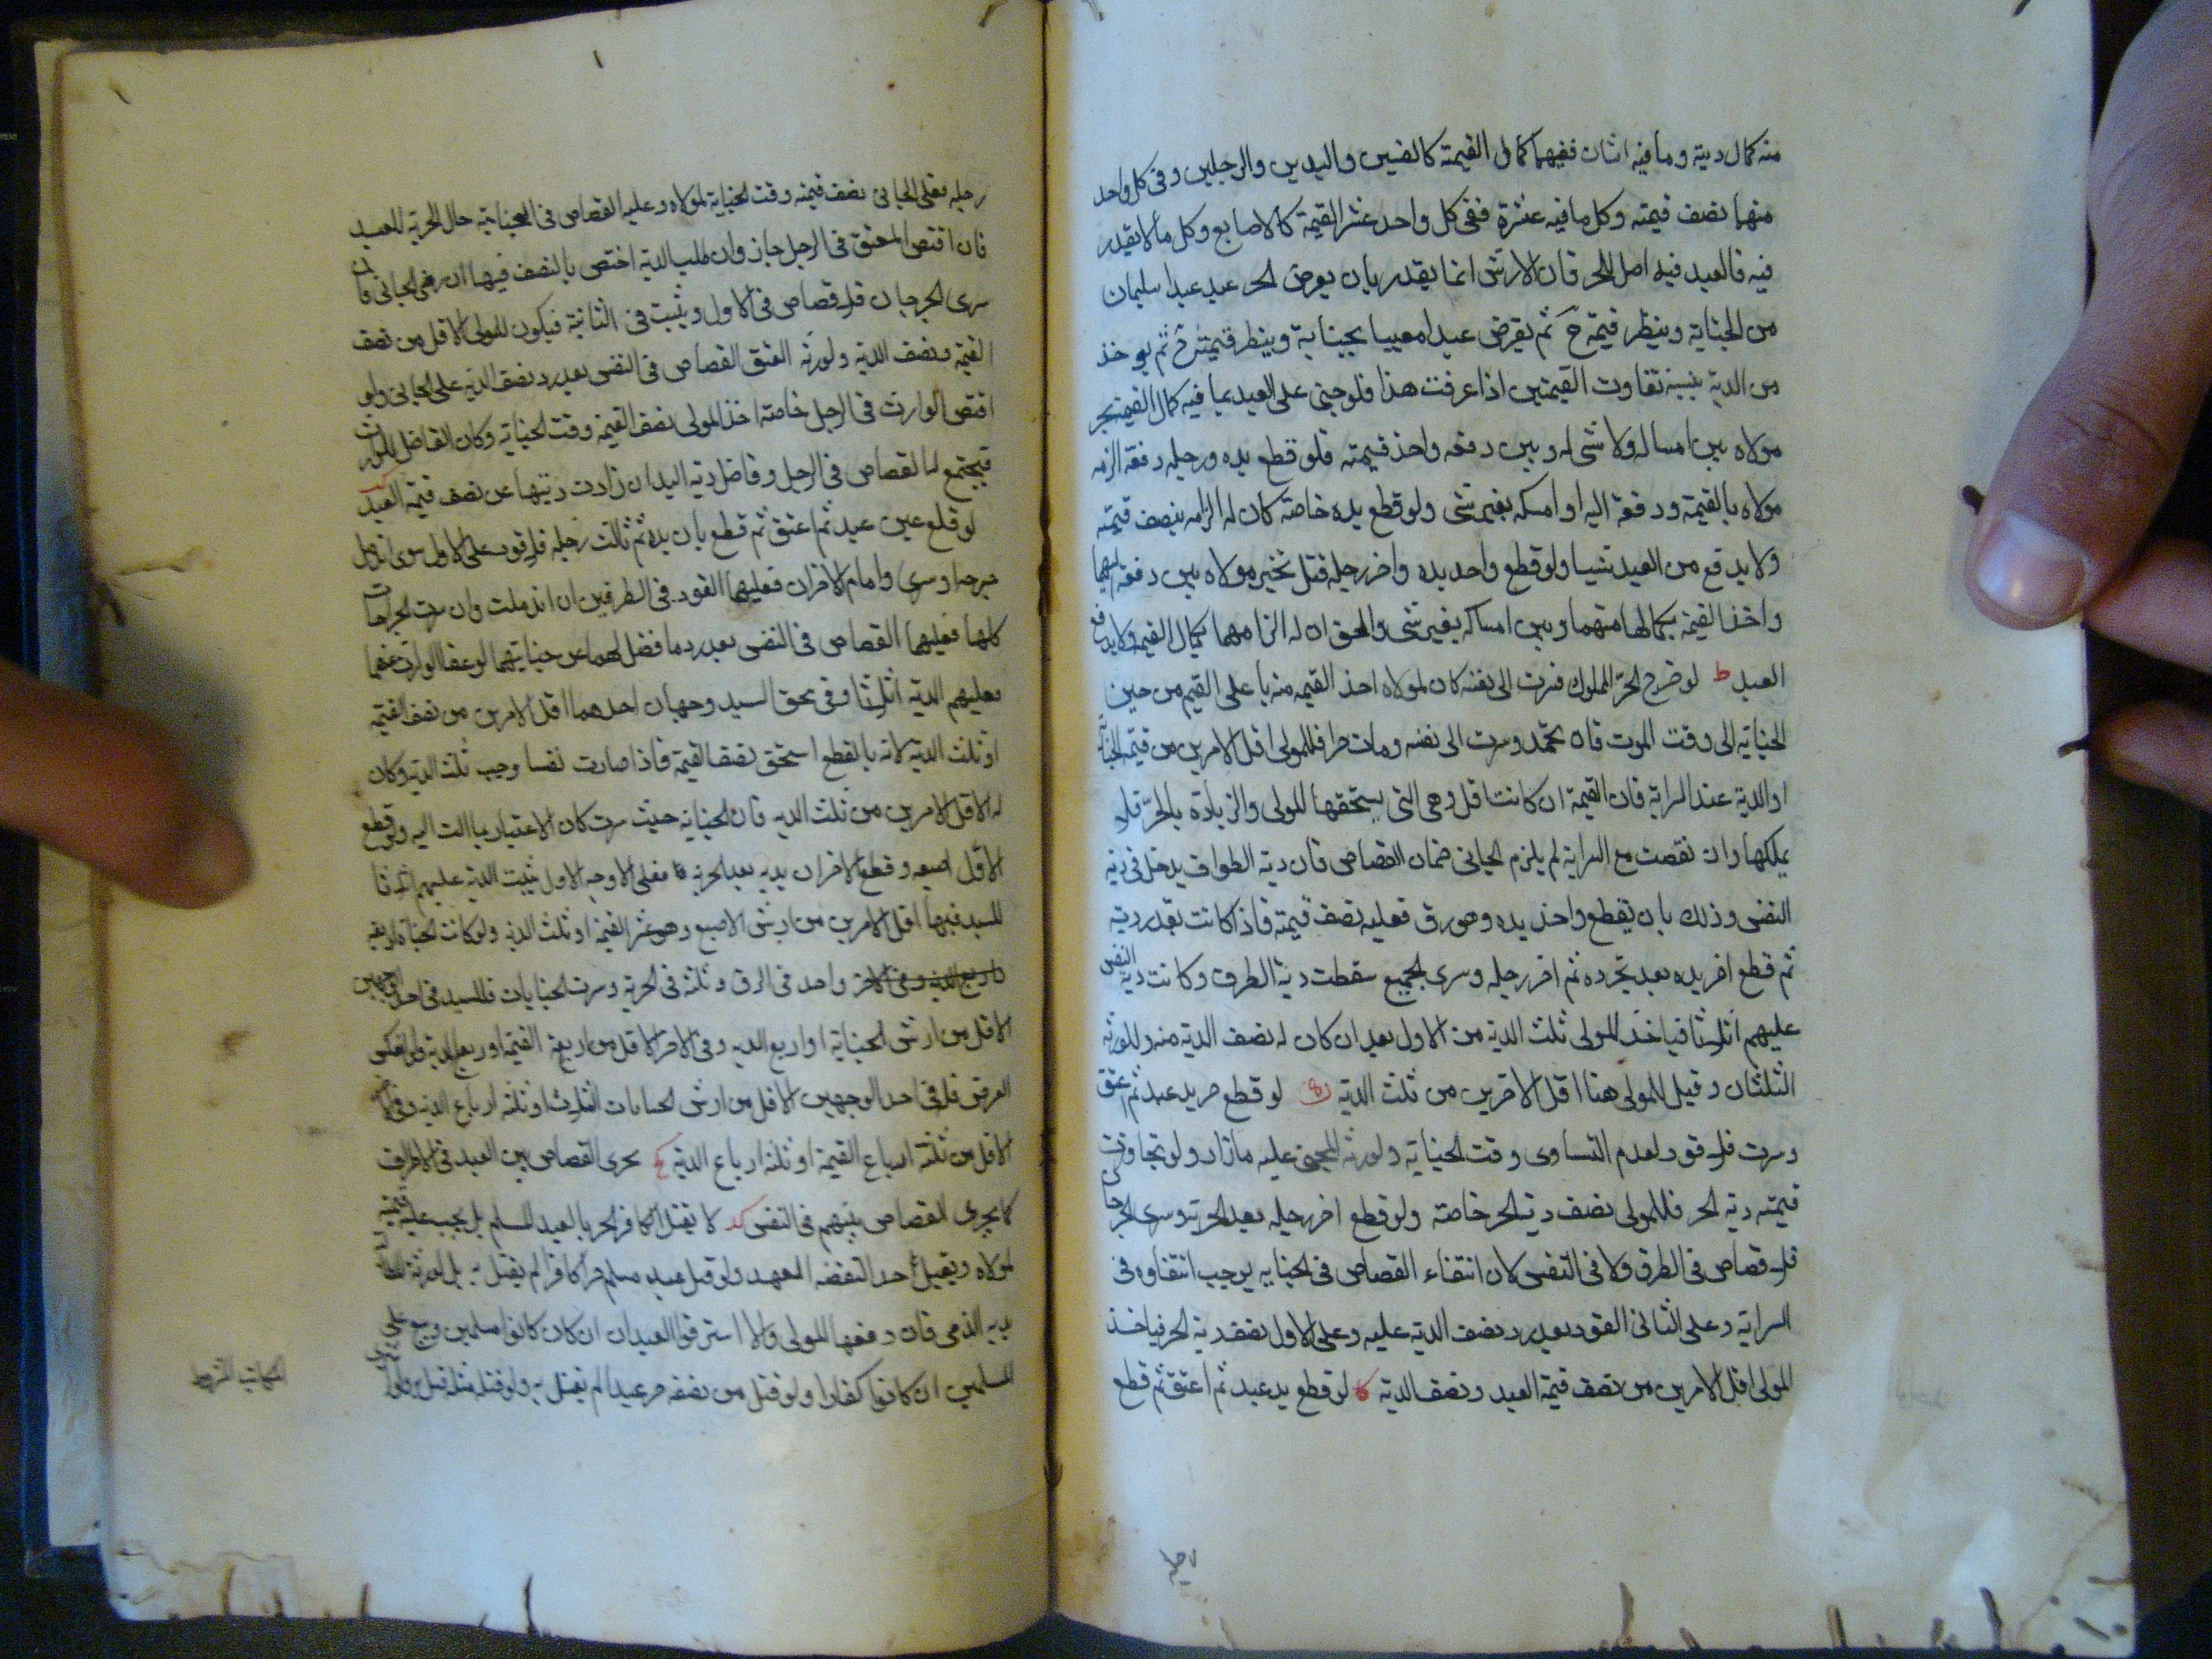 منه كمال ديته وما فيه اثنان ففيهما كمال القيمة كالعينين واليدين والرجلين وفي كل واحد
منهما نصف قيمته وكل ما فيه عشرة ففي كل واحد عشر القيمة كالاصابع وكل ما لا يقدر
فيه فالعبد فيه اصل للحر فان الارش انما يقدر بان يعرض الحر عبدا سليمان
من الجناية وينظر قيمته ح ثم يفرض عبدا معيبا بجناية وينظر قيمته ح ثم يوخذ
من الدية بنسبة تفاوت القيمتين اذا عرفت هذا فلو جنى على العبد بما فيه كمال القيمة تخير
مولاه بين امساكه ولا شى له وبين دفعه واخذ قيمته فلو قطع يده ورجله دفعة الزمه
مولاه بالقيمة ودفعه اليه او امسكه بغير شى ولو قطع يده خاصة كان له الزامه بنصف قيمته
ولا يدفع من العبد شيا ولو قطع واحد يده واخر رجله قيل تخير مولاه بين دفعه اليهما
واخذ القيمة بكمالها منهما وبين امساكه بغير شى والحق ان له الزامهما بكمال القيمة ولا يدفع
العبد ط لو جرح الحر المملوك فسرت الى نفسه كان لمولاه اخذ القيمة منه باعلى القيم من حين
الجناية الى وقت الموت فان تحرر وسرت الى نفسه ومات حرا فللمولى اقل الامرين من قيمة الجناية
او الدية عند السراية فان القيمة ان كانت اقل وهي التي يستحقها المولى والزيادة بالحرية فلا
يملكها وان نقصت مع السراية لم يلزم الجاني ضمان القصاص فان دية الطرف يدخل في دية
النفس وذلك بان يقطع واحد يده وهو رق فعليه نصف قيمته فاذا كانت بقدر دية
ثم قطع اخر يده بعد تحرره ثم اخر رجله وسرى الجميع سقطت دية الطرف وكانت دية النفس
عليهم اثلاثا فياخذ المولى ثلث الدية من الاول بعد ان كان له نصف الدية منه وللورثة
الثلثان وقيل للمولى هنا اقل الامرين من ثلث الدية لو قطع حر يد عبد ثم اعتق
وسرت فلا قود لعدم التساوى وقت الجناية ولورثه المجنى عليه مازاد ولو تجاوزت
قيمته دية الحر فللمولى نصف دية الحر خاصة ولو قطع اخر رجله بعد الحرية وسرى الجرحان
فلا قصاص في الطرف ولا في النفس لان انتفاء القصاص في الجناية يوجب انتفاوه في
السراية وعلى الثاني القود بعد رد نصف الدية عليه وعلى الاول نصف دية الحر فياخذ
المولى اقل الامرين من نصف قيمة العبد ونصف الدية كا لو قطع يد عبد ثم اعتق ثم قطع
رجله فعلى الجاني نصف قيمته وقت الجناية لمولاه وعليه القصاص في الجناية حال الحرية للعبد
فان اقتص المعتق في الرجل جاز وان طلب الدية اختص بالنصف فيها ان رضى الجاني فان
سرى الجرحان فلا قصاص في الاول ويثبت في الثانية فيكون للمولى الاقل من نصف
القيمة ونصف الدية ولورثه العتق القصاص في النفس بعد رد نصف الدية على الجاني ولو
اقتص الوارث في الرجل خاصة اخذ المولى نصف القيمة وقت الجناية وكان الفاضل للوارث
فيجتمع له القصاص في الرجل وفاضل دية اليد ان زادت ديتها عن نصف قيمة العبد كب
لو قلع عين عبد ثم اعتق ثم قطع بان يده ثم ثالث رجله فلا قود على الاول سوى اندمل
جرحه او سرى واما الاخران فعليهما القود في الطرفين ان اندملت وان سرت الجراحات
كلها فعليهما القصاص في النفس بعد رد ما فضل لهما عن جنايتهما لو عفا الوارث عنهما
فعليهم الدية اثلاثا وفي حق السيد وجهان احدهما اقل الامرين من نصف القيمة
او ثلث الدية لانه بالقطع استحق نصف القيمة فاذا صارت نفسا وجب ثلث الدية وكان
له الاقل الامرين من ثلث الدية فان الجناية حيث سرت كان الاعتبار بما الت اليه ولو قطع
الاول اصبعه وقطع الاخران يديه بعد الحرية فعلى الاوجه الاول يثبت الدية عليهم اثلاثا
للسيد فيها اقل الامرين من ارش الاصبع وهو عشر القيمة او ثلث الدية ولو كانت الجناة اربعه
واحد في الرق وثلثة في الحرية وسرت الجنايات فللسيد في احد الوجهين
الاقل من ارش الجناية او اربع الدية وفي الاخر الاقل من اربعة القيمة او ربع الدية ولو انعكس
الفرض فله في احد الوجهين الاقل من ارش الجنايات الثلاث او ثلثة ارباع الدية وفي الاخر
الاقل من ثلثة ارباع القيمة او ثلثة ارباع الدية كج يجرى القصاص بين العبد في الاطراف
كما يجرى القصاص بينهم في النفس كد لا يقتل الكافر الحر بالعبد المسلم بل يجب عليه قيمته
لمولاه ويقتل حدا لنقضه العهد ولو قتل عبد مسلم حرا كافرا لم يقتل به بل لورثة
دية الذمى فان دفعها المولى والا استرقوا العبد ان كان كانوا مسلمين وبيع على
المسلمين ان كانوا كفارا ولو قتل من نصفه حر عبدا لم يقتل به ولو قتله مثله قتل به